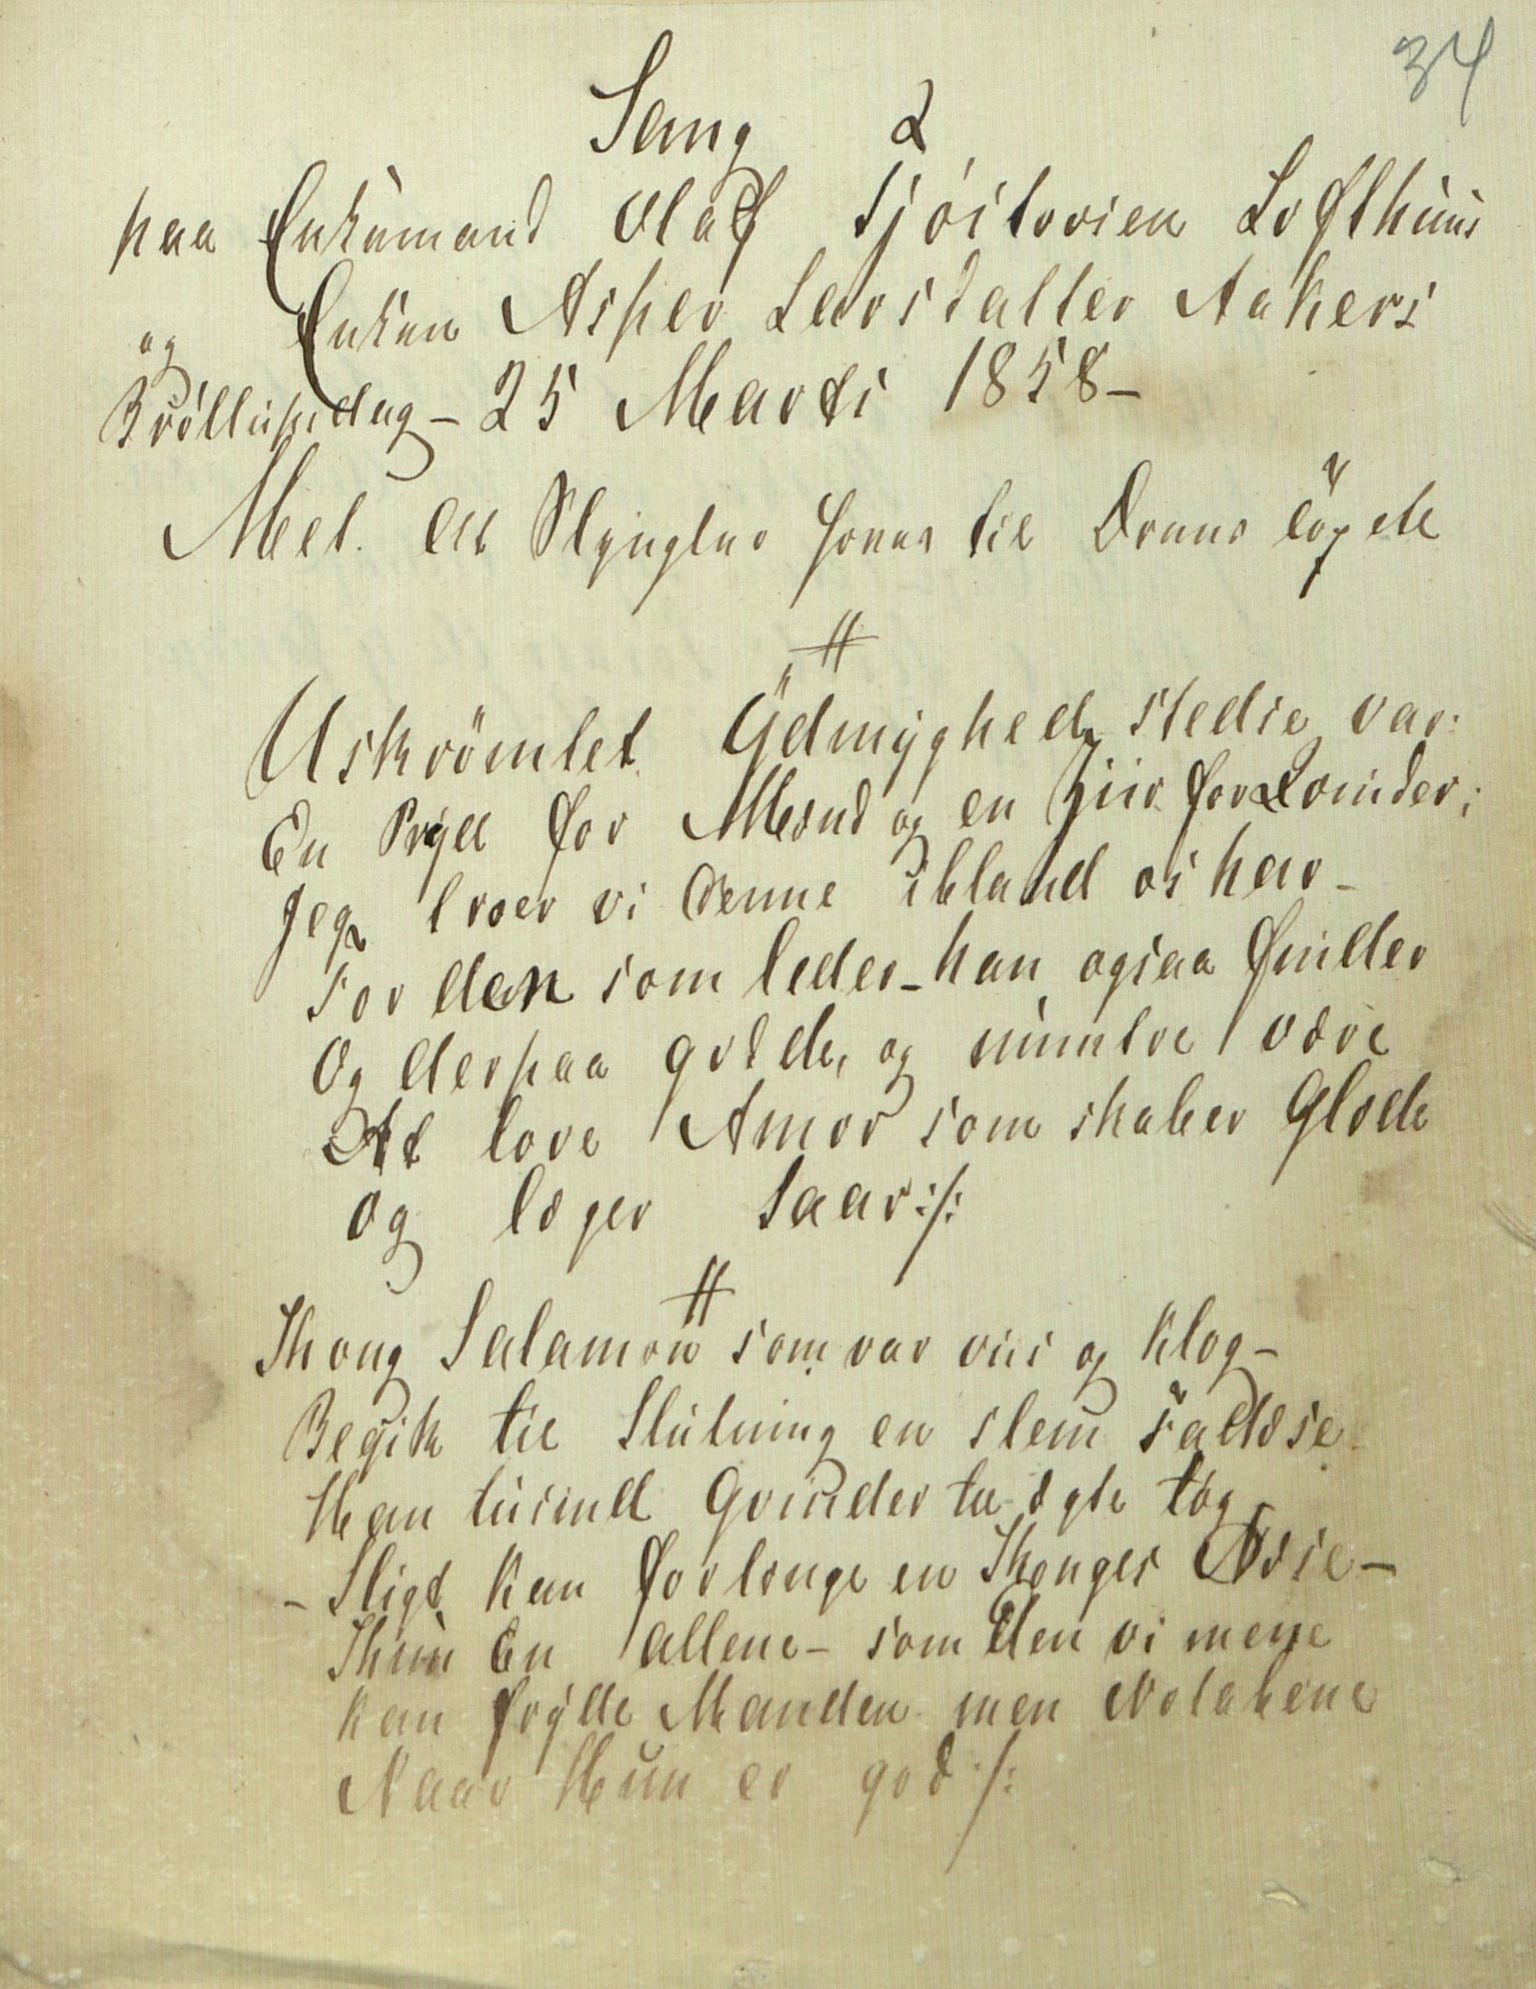 34
Sang 2
paa Enkemand Olaf Sjöitovsen Lofthuus
og Enken Asper Larsdatter Aakers
Bröllupsdag - 25 Marts 1858 -
Mel. En Slyngler
Uskrömtet Ydmyghed stedse var
En Pryd for Mænd og en Ziir for Qvinder;
Jeg troer vi denne ibland os har -
For den som leder - han ogsaa finder
Og derpaa gode, og muntre være
At love Amor som skaber Glæde
og læger Saar :/:
Kong Salamon som var viis og klog -
Begik til Slutning en slem
Han tusind Qvinder til ægte tog
- Sligt kan forlænge en Konges Næse -
Kun En allene - som den vi mene
kan fryde Manden men
Naar Hun er god :/: